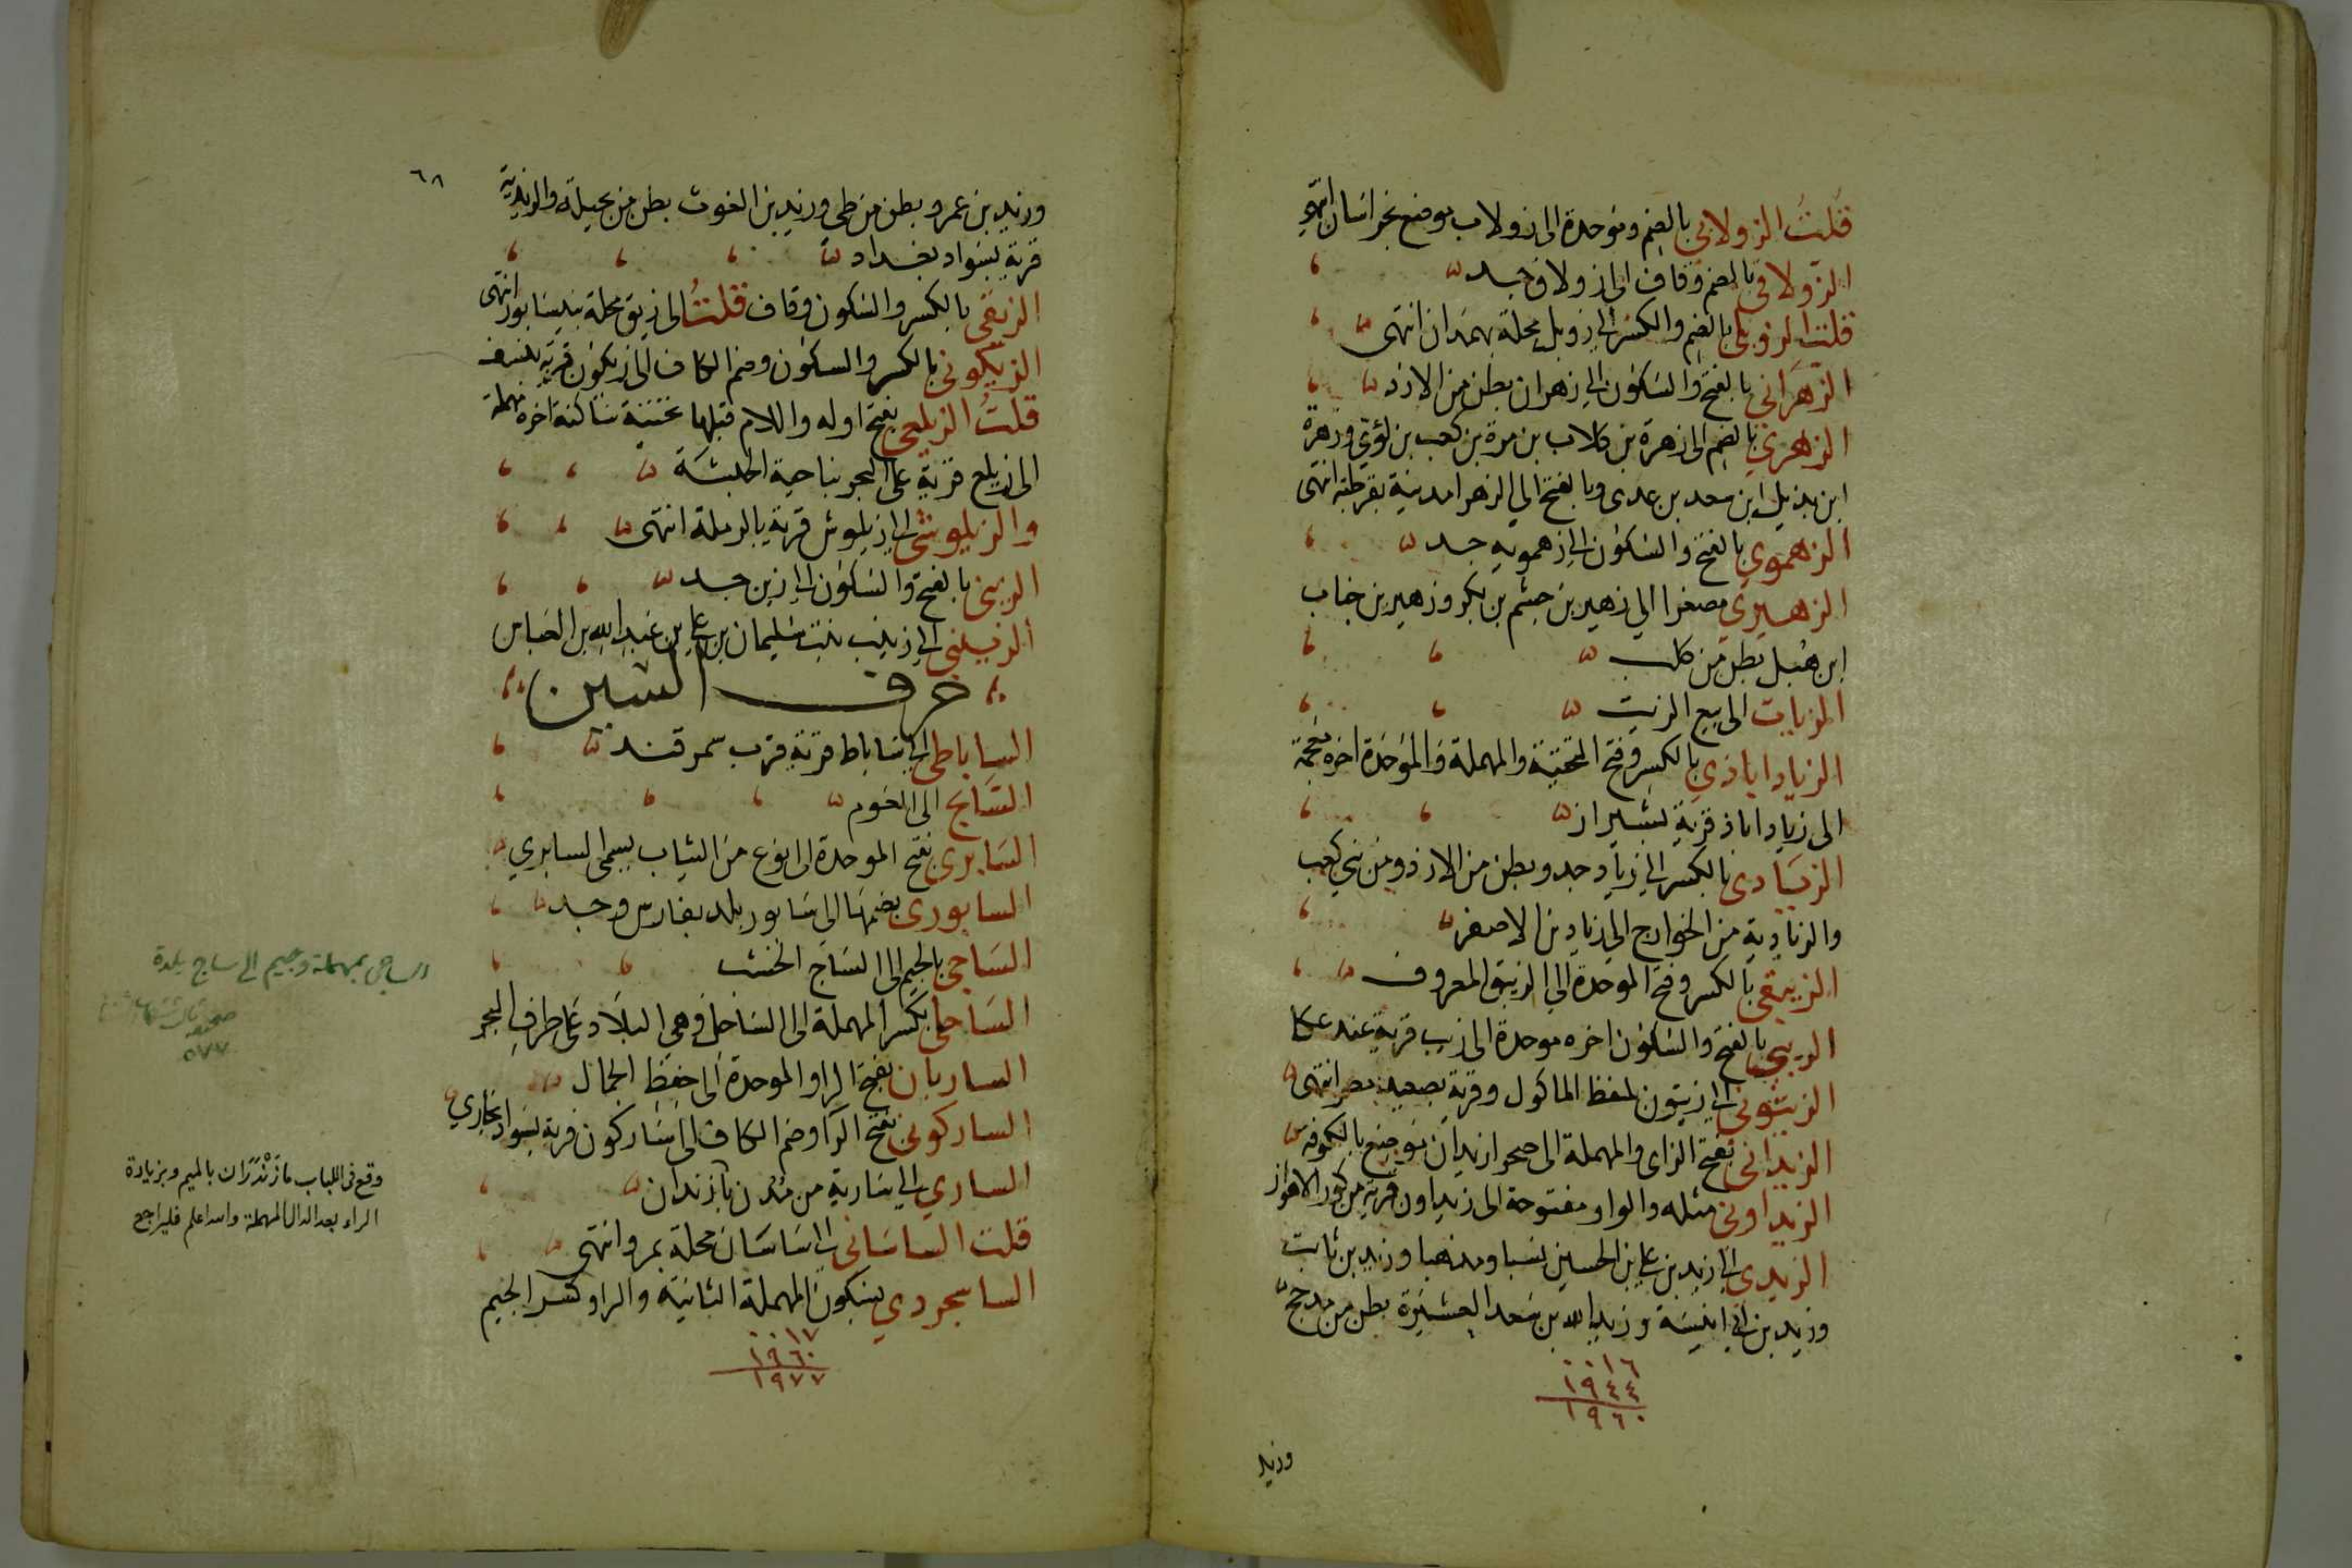 قلت الزولابي بالضم وموحدة الى زولاب موضع بخراسان انتهى
الزولاقي بالضم وقاف الى زولاق جد
قلت الزويلي بالضم والكسر الى زويل محلة بهمذان انتهى
الزهراني بالفتح والسكون الى زهران بطن من الازد
الزهري بالضم الى زهرة بن كلاب بن مرة بن كعب بن لؤي وزهرة
ابن بذيل ابن سعد بن عدى وبالفتح الى الزهرا مدينة بقرطبة انتهى
الزهموي بالفتح والسكون الى زهمويه جد
الزهيري مصغرا الى زهير بن جشم بن بكر وزهير بن جناب
ابن هبل بطن من كلب
الزيات الى بيع الزيت
الزياداباذي بالكسر وفتح التحتية والمهملة والموحدة اخره معجمة
الى زياداباذ قرية بشيراز
الزيادى بالكسر الى زياد جد وبطن من الازد ومن بني كعب
والزيادية من الخوارج الى زياد بن الاصفر
الزيبقي بالكسر وفتح الموحدة الى الزيبق المعروف
الزيبي بالفتح والسكون اخره موحدة الى زيب قرية عند عكا
الزيتوني الى زيتون بلفظ الماكول وقرية بصعيد مصر انتهى
الزيداني بفتح الزاى والمهملة الى صحرا زيدان موضع بالكوفه
الزيداوني مثله والواو مفتوحة الى زيداون قرية من كور الاهواز
الزيدي الى زيد بن علي بن الحسين نسبا ومذهبا وزيد بن ثابت
وزيد بن ابي انيسة وزيد الله بن سعد العشيرة بطن من مذحج
٠٠١٦
١٩٤٤
١٩٦٠
وزيد
٦٨
وزيد بن عمرو بطن من طي وزيد بن الغوث بطن من بجيلة والزيدية
قرية بسواد بغداد
الزيقي بالكسر والسكون وقاف قلت الى زيق محلة بنيسابور انتهى
الزيكوني بالكسر والسكون وضم الكاف الى زيكون قرية بنسف
قلت الزيلعي بفتح اوله واللام قبلها تحتية ساكنة اخره مهملة
الى زيلع قرية على البحر بناحية الحبشة
والزيلوشي الى زيلوش قرية بالرملة انتهى
الزيني بالفتح والسكون الى زين جد
الزينبي الى زينب بنت سليمان بن علي بن عبد الله بن العباس
حرف السين
الساباطي الى ساباط قرية قرب سمرقند
السابح الى العوم
السابري بفتح الموحدة الى نوع من الثياب يسمى السابري
السابوري بضمها الى سابور بلد بفارس وجد
الساجي بالجيم الى الساج الخشب
الساحلي بكسر المهملة الى الساحل وهي البلاد على طرف البحر
الساربان بفتح الرا والموحدة الى حفظ الجمال
الساركوني بفتح الرا وضم الكاف الى ساركون قرية بسواد بخاري
الساري الى سارية من مدن مازندان
قلت الساساني الى ساسان محلة بمرو انتهى
الساسجردي بسكون المهملة الثانية والرا وكسر الجيم
٠٠١٧
١٩٦٠
١٩٧٧
الساجي بمهملة وجيم الى ساج بلدة
٥٧٧
وقع في اللباب مازندران بالميم وبزيادة
الراء بعد الدال المهملة والله اعلم فليراجع